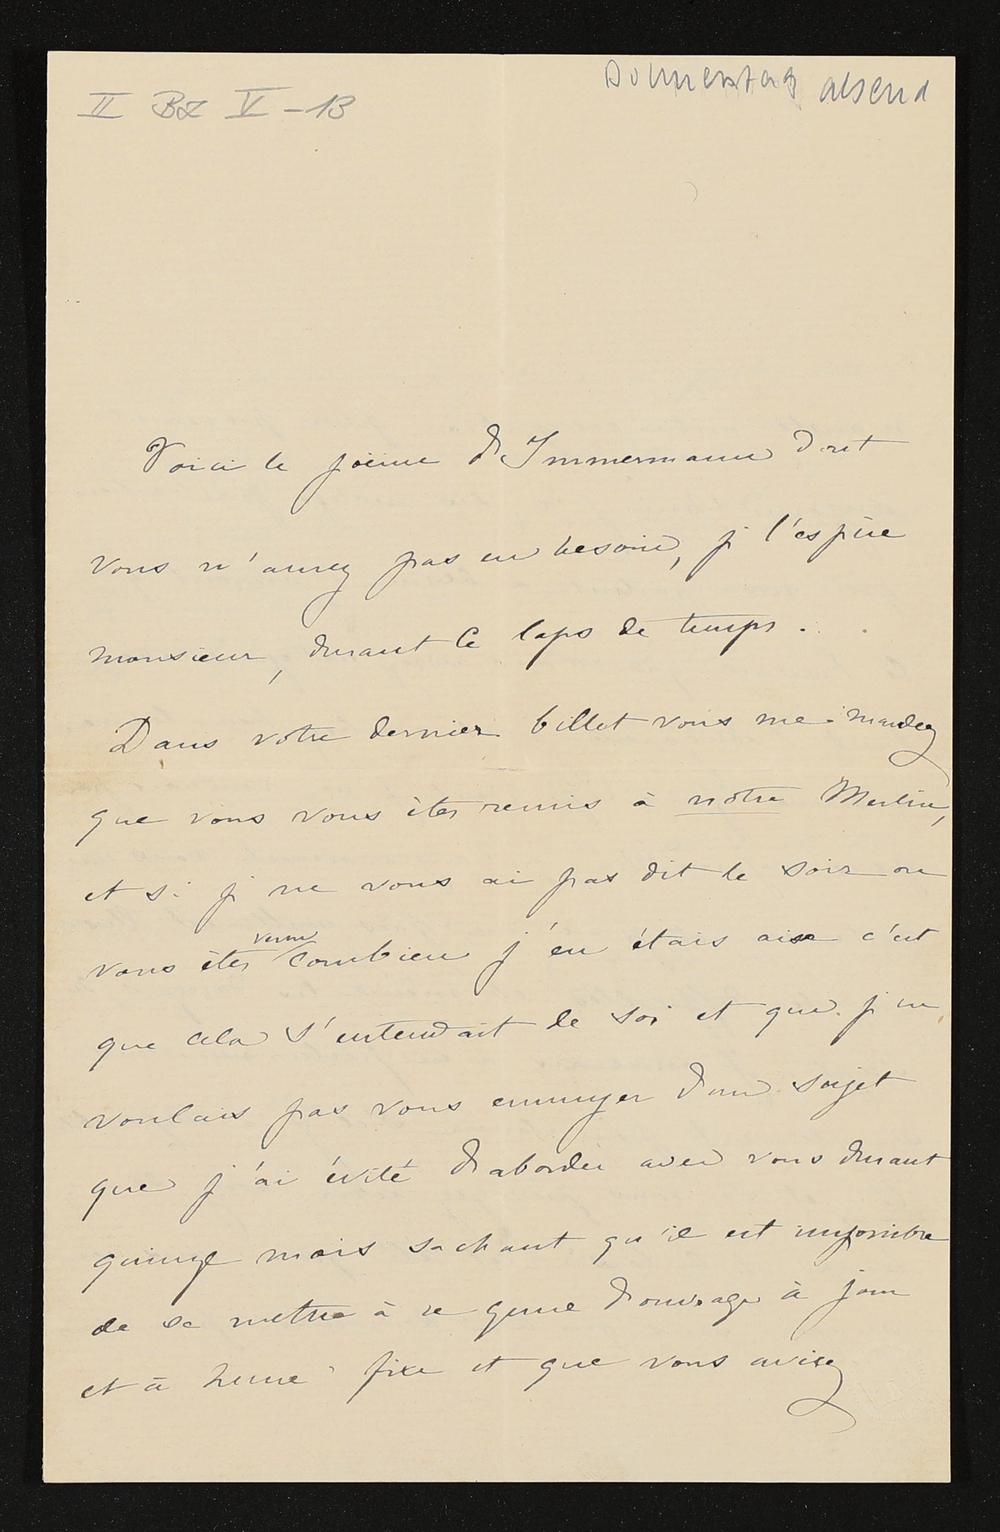 II BZ V-13
Donnerstag abend
Voici le poëme d'Immermann dont
vous n'aurez pas eu besoin, je l'espère
monsieur, durant ce laps de temps.
Dans votre dernier billet vous me mandez
que vous vous êtes remis à notre Merlin,
et si je ne vous ai pas dit le soir ou
vous êtes venu combien j'en étais aise c'est
que cela s'entendait de soi et que je ne
voulais pas vous ennuyer d'un sujet
que j'ai évité d'aborder avec vous durant
quinze mois sachant qu'il est impossible
de se mettre à ce genre d'ouvrage à jour
et à heure fixe et que vous aviez